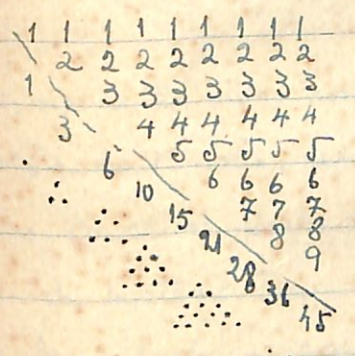 1 1 1 1 1 1 1 1 1
2 2 2 2 2 2 2 2
1 3 3 3 3 3 3 3
3 4 4 4 4 4 4
5 5 5 5 5
6 6 6 6 6
10 7 7 7
15 8 8
21 9
28
36
45